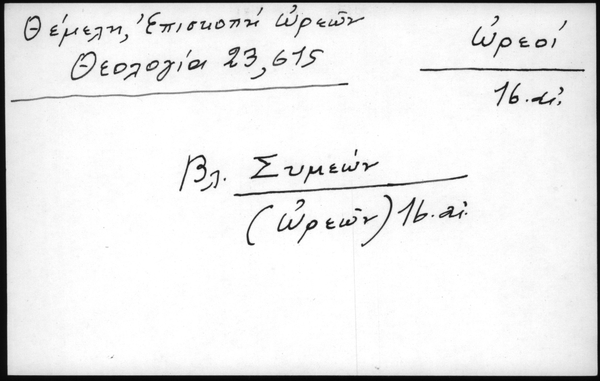 Θέμελη, Ἐπισκοπή Ὠρεῶν
Θεολογία 23,615
Ὠρεοί
16. αἰ.
Βλ. Συμεών
(Ὠρεῶν) 16. αἰ.